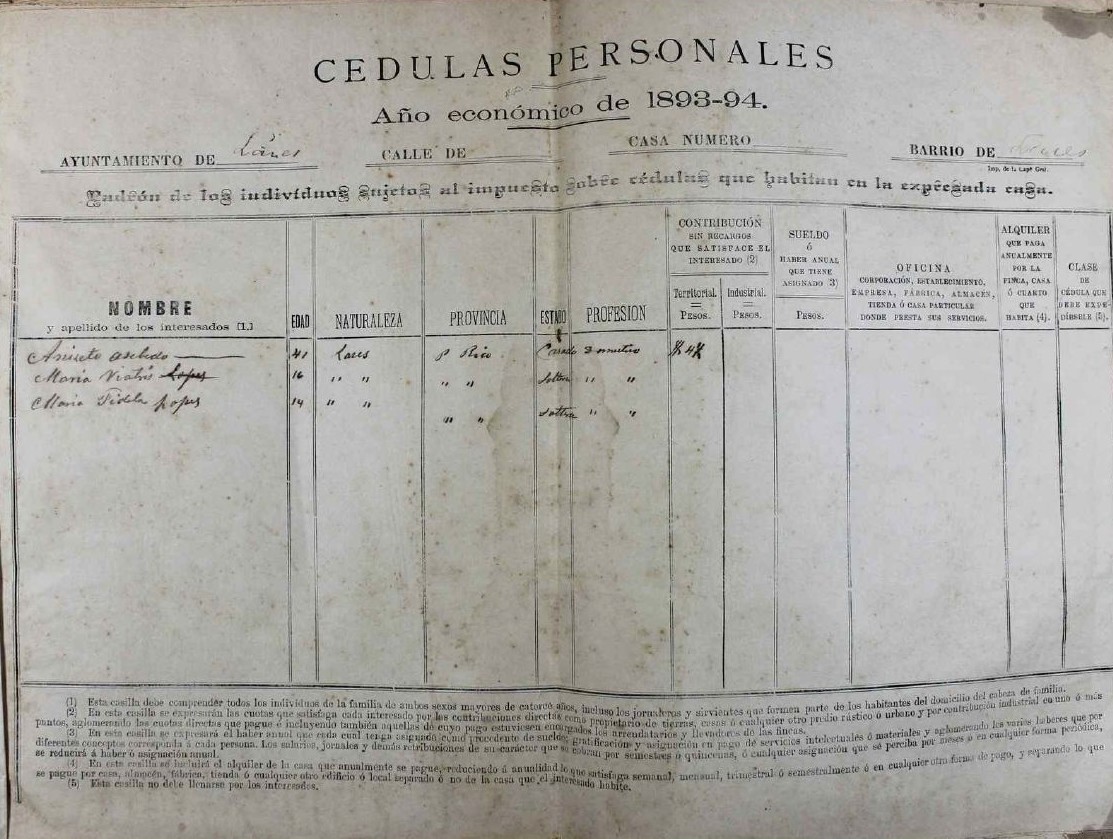 CEDULAS PERSONALES
Año económico de 1893-94.
AYUNTAMIENTO DE Lares CALLE DE CASA NUMERO BARRIO DE Lares
Imp. de la Capª Gral.
Padrón de los individuos sujetos al impuesto sobre cédulas que habitan en la expresada casa.
NOMBRE
y apellido de los interesados (1.)
EDAD
NATURALEZA
PROVINCIA
ESTADO
PROFESION
CONTRIBUCIÓN
SIN RECARGOS
QUE SATISFACE EL
INTERESADO (2)
Territorial.
PESOS.
Industrial.
PESOS.
SUELDO
Ó
HABER ANUAL
QUE TIENE
ASIGNADO 3)
PESOS.
OFICINA
CORPORACIÓN, ESTABLECIMIENTO,
EMPRESA, FÁBRICA, ALMACÉN,
TIENDA Ó CASA PARTICULAR
DONDE PRESTA SUS SERVICIOS.
ALQUILER
QUE PAGA
ANUALMENTE
POR LA
FINCA, CASA
Ó CUARTO
QUE
HABITA (4).
CLASE
DE
CÉDULA QUE
DEBE EXPE-
DIRSELE (5).
Aniseto 41 Lares P Rico Casado
Maria Lopes 16 " " " " Soltera " "
Maria Fidela Lopes 14 " " " " Soltera " "
(1) Esta casilla debe comprender todos los individuos de la familia de ambos sexos mayores de catorce años, incluso los jornaleros y sirvientes que formen parte de los habitantes del domicilio del cabeza de familia.
(2) En esta casilla se expresarán las cuotas que satisfaga cada interesado por las contribuciones directas como propietario de tierras, casas ó cualquier otro predio rústico ó urbano y por contribución industrial en uno ó más
puntos, aglomerando las cuotas directas que pague é incluyendo también aquellas de cuyo pago estuviesen encargados los arrendatarios y llevadores de las fincas.
(3) En esta casilla se expresará el haber anual que cada cual tenga asignado como procedente de sueldo, gratificación y asignación en pago de servicios intelectuales ó materiales y aglomerando los varios haberes que por
diferentes conceptos corresponda á cada persona. Los salarios, jornales y demás retribuciones de su carácter que se cobran por semestres ó quincenas, ó cualquier asignación que se perciba por meses ó en cualquier forma periódica,
se reducirá á haber ó asignación anual.
(4) En esta casilla se incluirá el alquiler de la casa que anualmente se pague, reduciendo á anualidad lo que satisfaga semanal, mensual, trimestral ó semestralmente ó en cualquier otra forma de pago, y reparando lo que
se pague por casa, almacén, fábrica, tienda ó cualquier otro edificio ó local separado ó no de la casa que el interesado habite.
(5) Esta casilla no debe llenarse por los interesados.